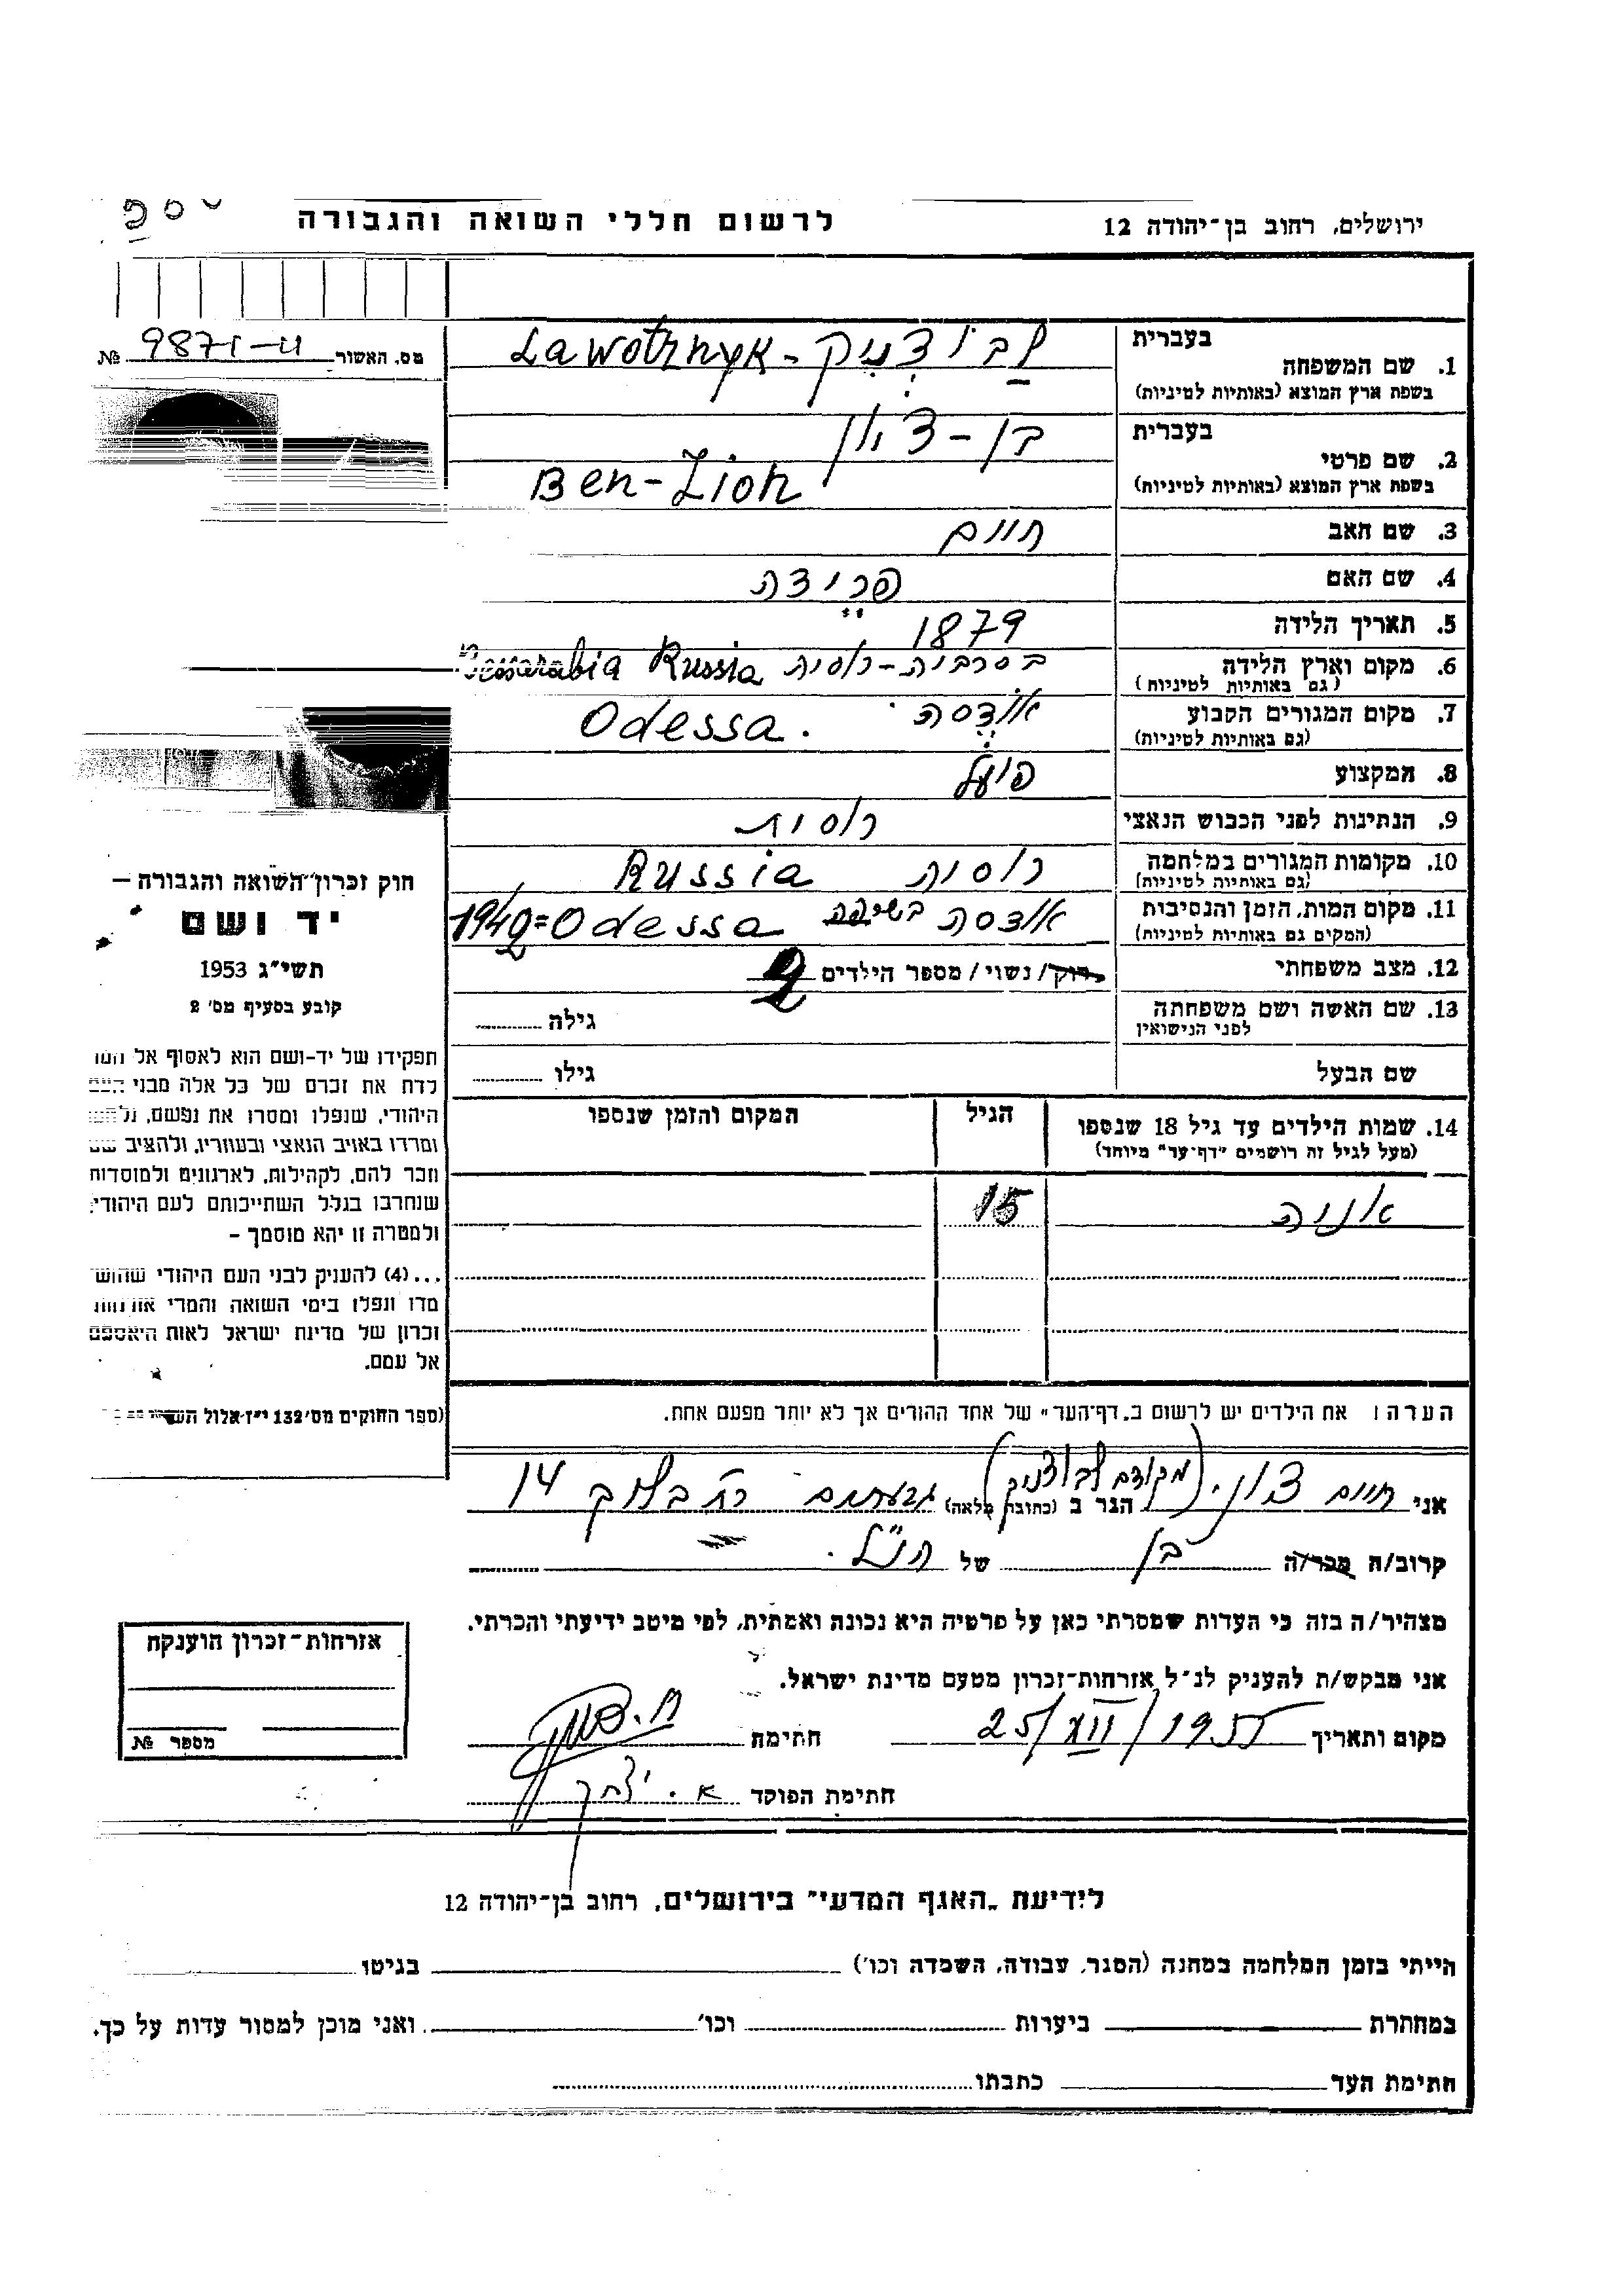 לרשום חללי השואה והגבורה
ירושלים, רחוב בן־יהודה 12
מס. האשור № 9871-
בעברית
1. שם המשפחה
בשפת ארץ המוצא (באותיות לטיניות)
לבוצניק - Lawotznyk
בעברית
2. שם פרטי
בשפת ארץ המוצא (באותיות לטיניות)
בן-ציון
Ben-Zion
3. שם האב חיים
4. שם האם פרידה
5. תאריך הלידה 1879
6. מקום וארץ הלידה
(גם באותיות לטיניות)
בסרביה-רוסיה Bessarabia Russia
7. מקום המגורים הקבוע
(גם באותיות לטיניות)
אודסה. Odessa.
8. המקצוע פועל
9. הנתינות לפני הכבוש הנאצי רוסית
10. מקומות המגורים במלחמה
(גם באותיות לטיניות)
רוסיה Russia
11. מקום המות, הזמן והנסיבות
(המקום גם באותיות לטיניות)
אודסה בשריפה 1942=Odessa
12. מצב משפחתי רוק/ נשוי/ מספר הילדים 2
13. שם האשה ושם משפחתה
לפני הנישואין
גילה
שם הבעל גילו
14. שמות הילדים עד גיל 18 שנספו
(מעל לגיל זה רושמים "דף-עד" מיוחד)
הגיל
המקום והזמן שנספו
אניה 15
הערה: את הילדים יש לרשום ב„דף־העד" של אחד ההורים אך לא יותר מפעם אחת.
חוק זכרון השואה והגבורה —
יד ושם
תשי"ג 1953
קובע בסעיף מס' 2
תפקידו של יד-ושם הוא לאסוף אל
לדת את זכרם של כל אלה מבני העם
היהודי, שנפלו ומסרו את נפשם,
ומרדו באויב הנאצי ובעוזריו, ולהציב שם
וזכר להם, לקהילות, לארגונים ולמוסדות
שנחרבו בגלל השתייכותם לעם היהודי;
ולמטרה זו יהא מוסמך -
...(4) להעניק לבני העם היהודי
מדו ונפלו בימי השואה והמרי
זכרון של מדינת ישראל לאות היאספם
אל עמם.
(ספר החוקים מס' 132 י"ז אלול
אני חיים ציון. (מקודם לבוצניק) הגר ב (כתובת מלאה) גבעתיים רח' 14
קרוב/ה מכר/ה בן של הנ"ל.
מצהיר/ה בזה כי העדות שמסרתי כאן על פרטיה היא נכונה ואמתית, לפי מיטב ידיעתי והכרתי.
אני מבקש/ת להעניק לנ"ל אזרחות־זכרון מטעם מדינת ישראל.
מקום ותאריך 25/XII/1955 חתימת ח. ציון
חתימת הפוקד א. יצחק
אזרחות־זכרון הוענקה
מספר №
לידיעת „האגף המדעי" בירושלים, רחוב בן־יהודה 12
הייתי בזמן המלחמה במחנה (הסגר, עבודה, השמדה וכו') בגיטו
במחתרת ביערות וכו' ואני מוכן למסור עדות על כך.
חתימת העד כתבתו